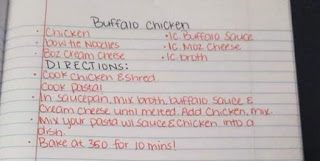 Buffalo Chicken
• Chicken • 1C. Buffalo Sauce
• bowtie Noodles • 1C Moz Cheese
• 8oz Cream Cheese • 1C broth
DIRECTIONS:
• Cook chicken & shred.
Cook pasta!
• In saucepan, mix broth, buffalo sauce &
cream cheese until melted. Add chicken, mix.
• Mix your pasta w/ sauce & chicken into a
dish.
• Bake at 350 for 10 mins!